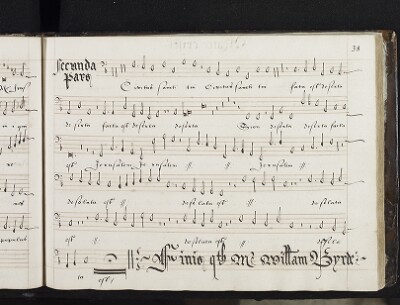 38
Secunda
pars
Civitas sancti tui Civitas sancti tui facta est deserta
deserta facta est deserta deserta Sion deserta facta
est Jerusalem Jerusalem // // Jerusalem //
desolata est // desolata // desolata
est // desolata est // desolata
est
Finis qth Mr William Byrde